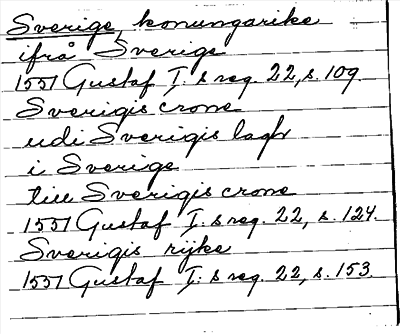 Sverige, konungarike
ifrå Sverige
1551 Gustaf I: s reg. 22, s. 109.
Sverigis crone
udi Sverigis lagh
i Sverige
till Sverigis crone
1551 Gustaf I: s reg. 22, s. 124.
Sverigis rijke
1551 Gustaf I: s reg. 22, s. 153.